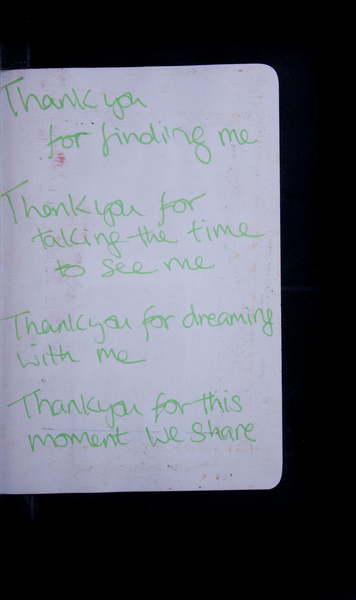 Thank you
for finding me
Thank you for
taking the time
to see me
Thank you for dreaming
with me
Thank you for this
moment we share